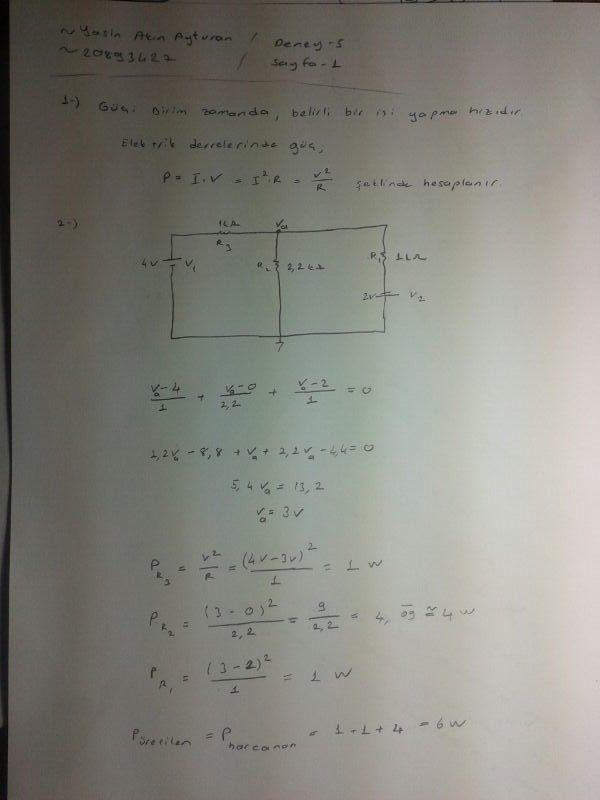 ~ Yasin Akın Ayturan / Deney-5
~ 20893427 / Sayfa-1
1-) Güç; Birim zamanda, belirli bir işi yapma hızıdır
Elektrik devrelerinde güç;
P = I·V = I²·R = V²/R şeklinde hesaplanır.
2-)
1kΩ Va
R3
4V V1 R2 2,2kΩ R1 1kΩ
2V V2
Va-4/1 + Va-0/2,2 + Va-2/1 = 0
2,2Va - 8,8 + Va + 2,2Va - 4,4 = 0
5,4 Va = 13,2
Va = 3V
PR3 = V²/R = (4V-3V)²/1 = 1 W
PR2 = (3-0)²/2,2 = 9/2,2 = 4,09 ≅ 4 W
PR1 = (3-2)²/1 = 1 W
Püretilen = Pharcanan = 1+1+4 = 6W